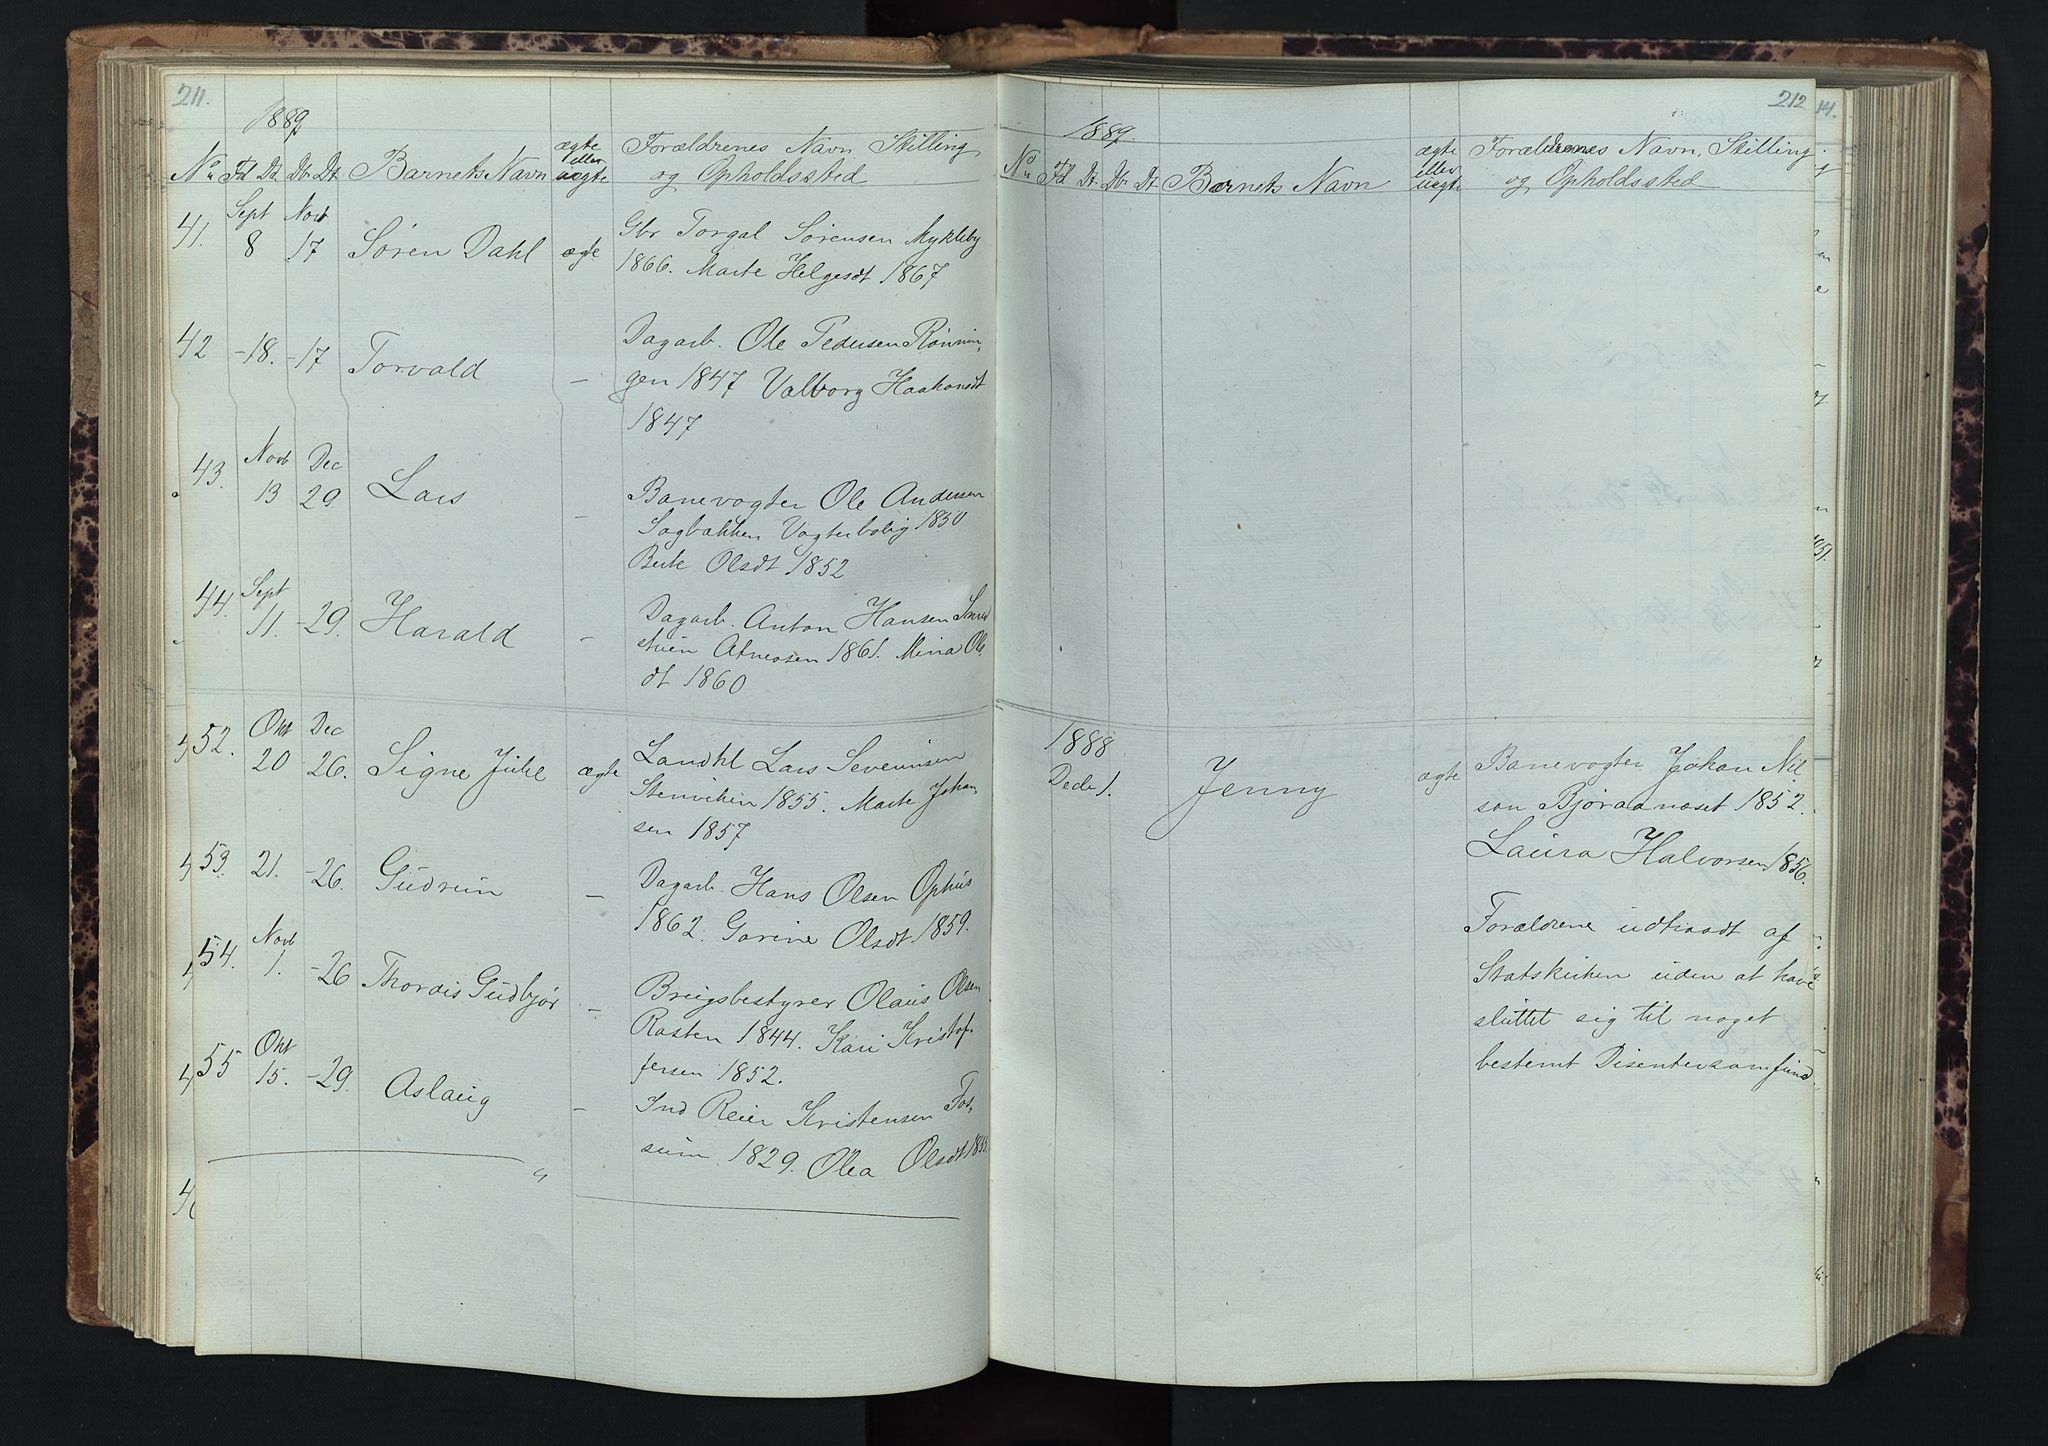 211.
1889
No Fd Dd Db Dt Barnets Navn ægte eller uægte Forældrenes Navn Stilling og Opholdssted
41. Sept 8 Novb 17 Søren Dahl ægte Gbr Torgal Sørensen Mykleby
1866. Marte Helgesdt 1867
42 -18. -17 Torvald - Dagarb. Ole Pedersen Rønnin-
gen 1847 Valborg Haakonsdt
1847
43. Novb 13 Dec 29. Lars - Banevogter Ole Andersen
Sagbakken Vogterbolig 1850
Berte Olsdt 1852
44. Sept 11. -29. Harald - Dagarb. Anton Hansen
Atneosen 1861. Mina Ols-
dt 1860
52. Okt 20 Dec 26. Signe Julie ægte Landhl Lars Severinsen
Stenviken 1855. Marte Johan-
sen 1857
53. 21. -26. Gudrun - Dagarb. Hans Olsen Ophus
1862. Gorine Olsdt 1859.
54. Novb 1. -26 Thordis Gudbjør - Brugsbestyrer Olaus Olsen
Rasten 1844. Kari Kristof-
fersen 1852.
55 Okt 15. -29. Aslaug - Ind Reier Kristensen Fos-
sum 1829. Olea Olsdt
212
1889.
No Fd Dt. Db Dt Barnets Navn ægte eller uægte Forældrenes Navn, Stilling og Opholdssted
1888
Decb 1. Jenny ægte Banevogter Johan Nil
sen Bjøraanæset 1852.
Laura Halvorsen 1856.
Forældrene udtraadt af
Statskirken uden at have
sluttet sig til noget
bestemt Disentersamfund.
14.